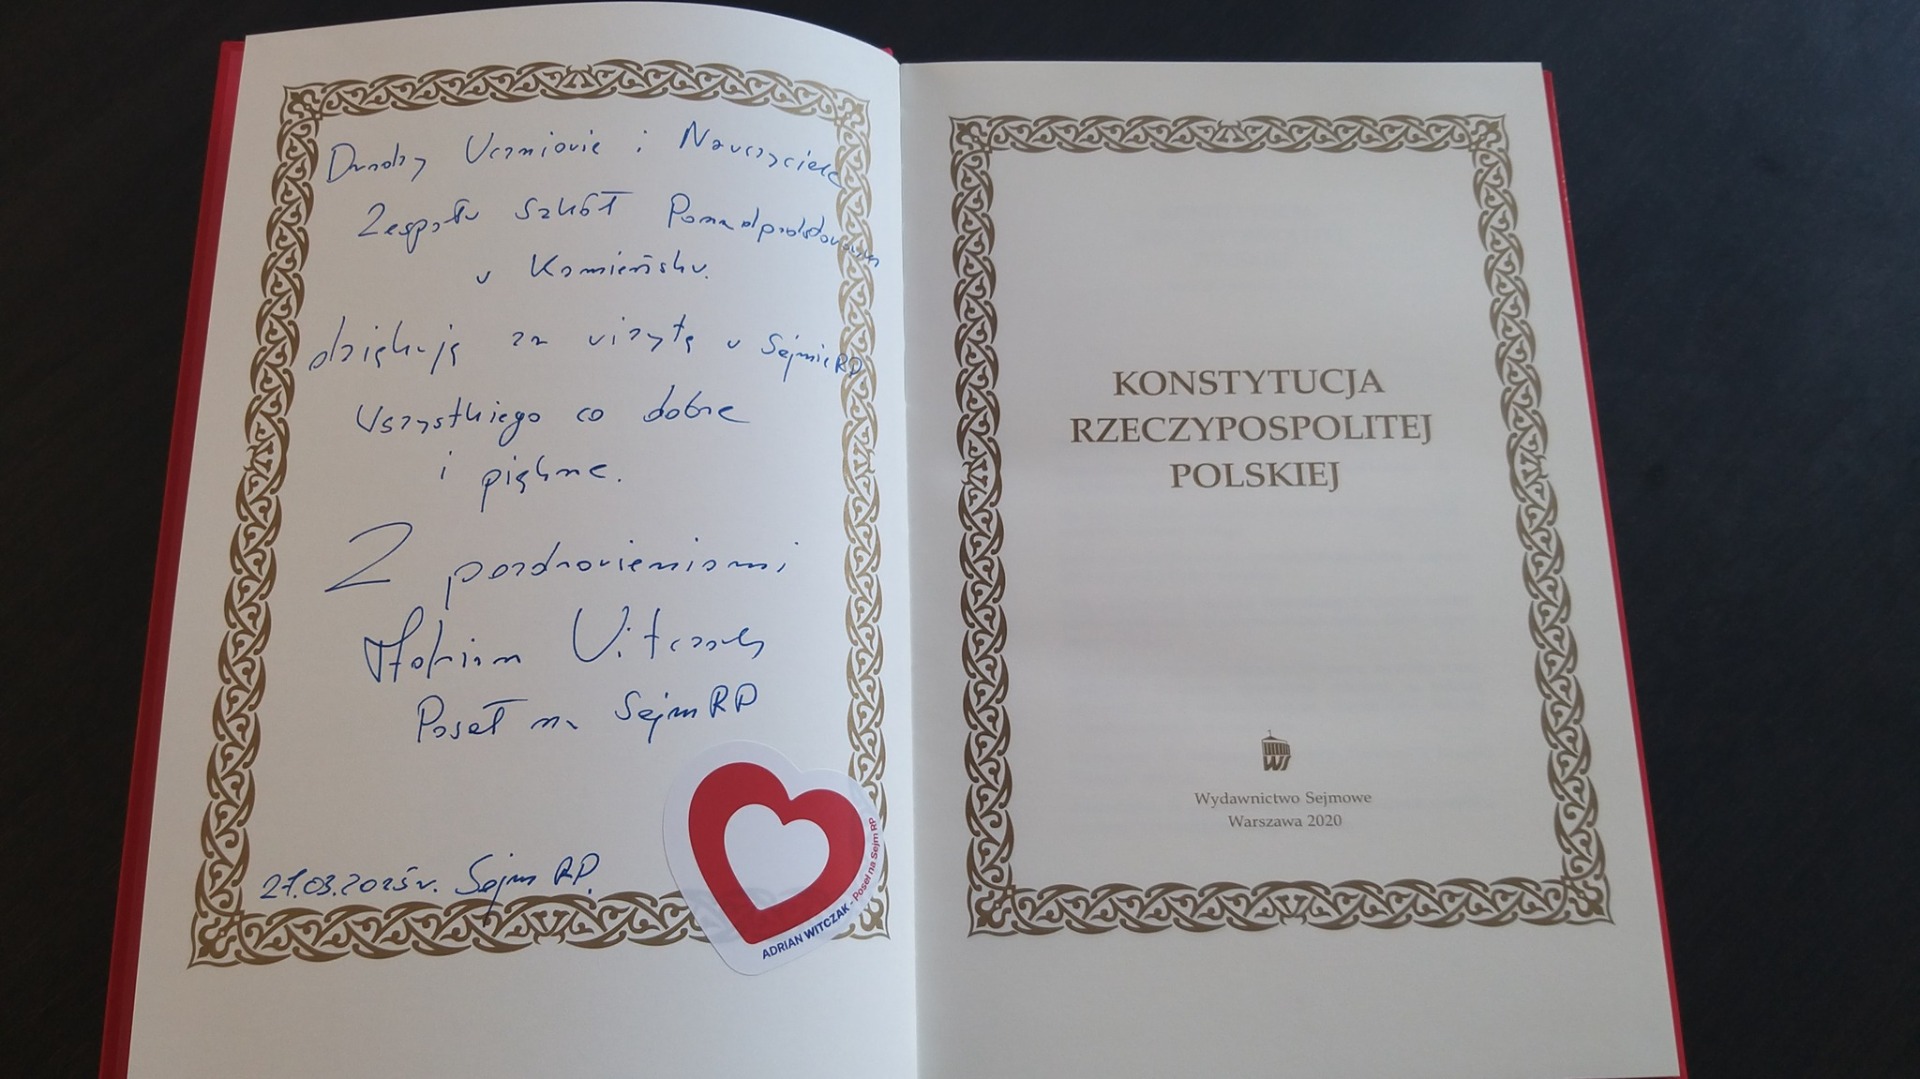 Drodzy Uczniowie i Nauczyciele
Zespołu Szkół Ponadpodstawowych
w Kamieńsku.
dziękuję za wizytę w Sejmie RP
Wszystkiego co dobre
i piękne.
Z pozdrowieniami
Adrian Witczak
Poseł na Sejm RP
27.03.2025 r. Sejm RP.
ADRIAN WITCZAK - Poseł na Sejm RP
KONSTYTUCJA
RZECZYPOSPOLITEJ
POLSKIEJ
WS
Wydawnictwo Sejmowe
Warszawa 2020